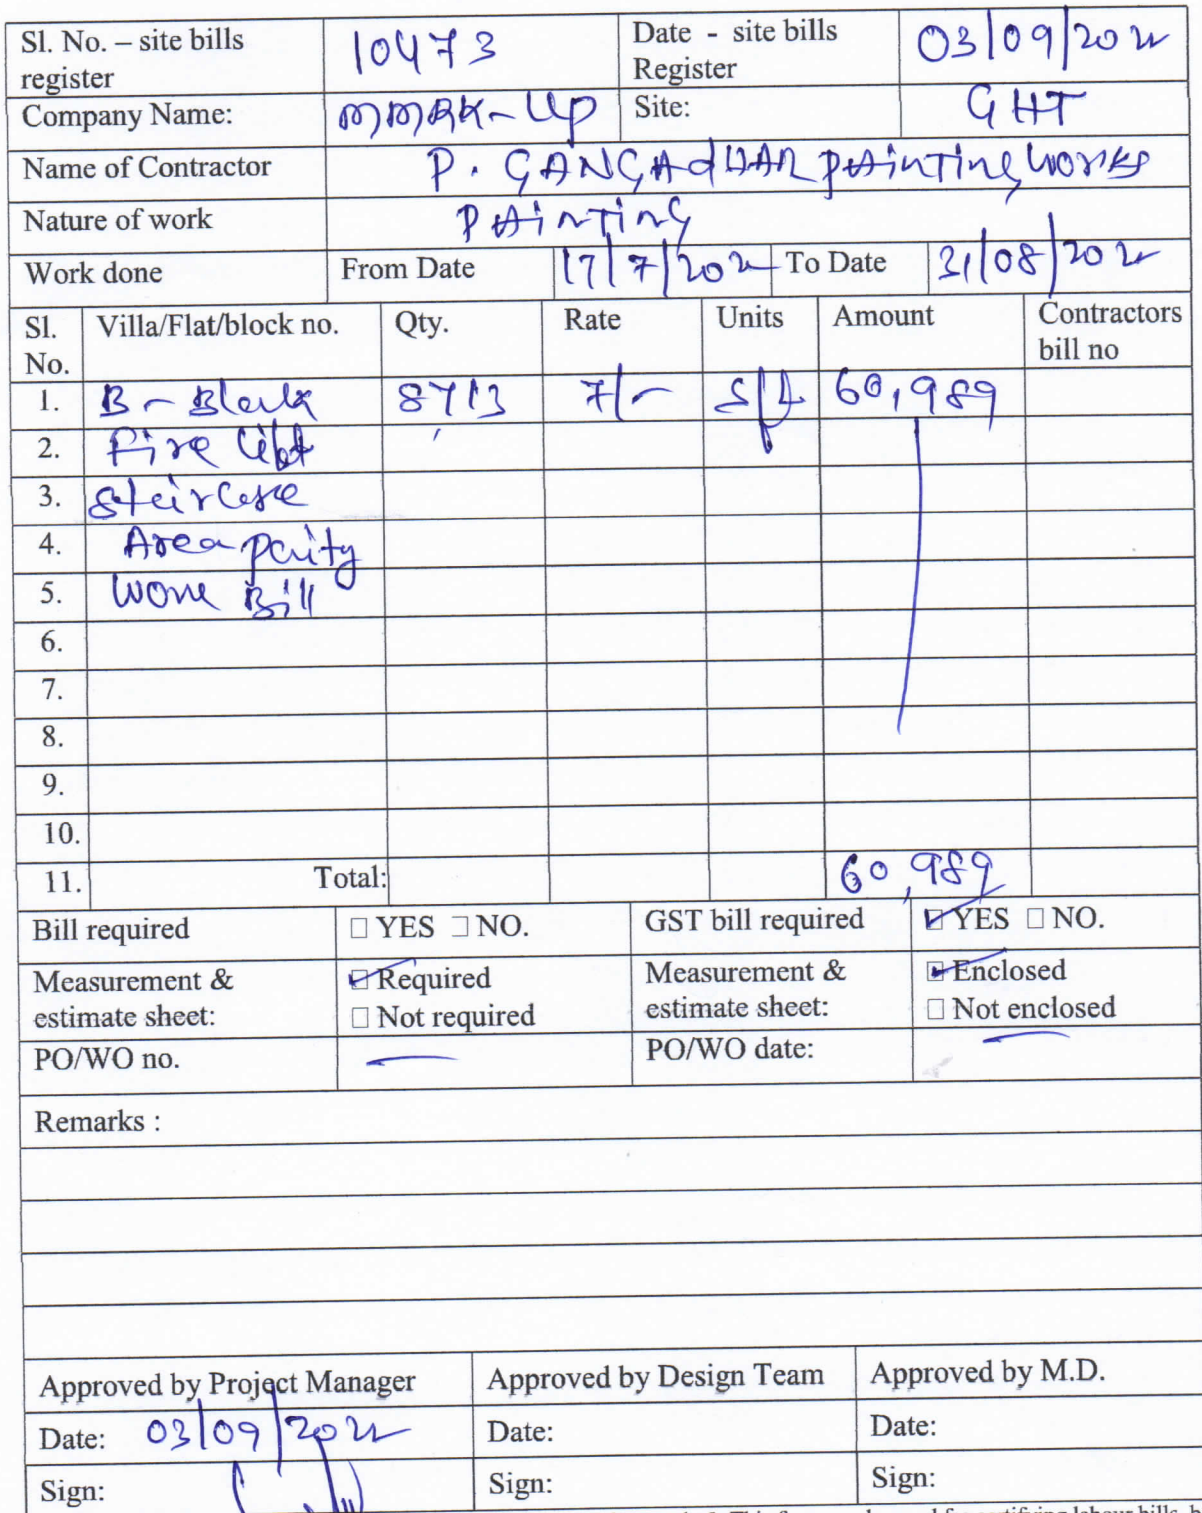 Sl. No. – site bills register 10473 Date - site bills Register 03/09/2022
Company Name: MMRK-UP Site: GHT
Name of Contractor P. GANGAdHAR PAiNTiNG WORKS
Nature of work PAiNTiNG
Work done From Date 17/7/2022 To Date 31/08/2022
Sl. No. Villa/Flat/block no. Qty. Rate Units Amount Contractors bill no
1. B - Block 8713 7/- Sft 60,989
2. Fire Lift
3. Staircase
4. Area
5. Work Bill
6.
7.
8.
9.
10.
11. Total: 60,989
Bill required □ YES □ NO. GST bill required ☑ YES □ NO.
Measurement & estimate sheet: ☑ Required □ Not required Measurement & estimate sheet: ☑ Enclosed □ Not enclosed
PO/WO no. — PO/WO date: —
Remarks :
Approved by Project Manager Approved by Design Team Approved by M.D.
Date: 03/09/2022 Date: Date:
Sign: Sign: Sign: